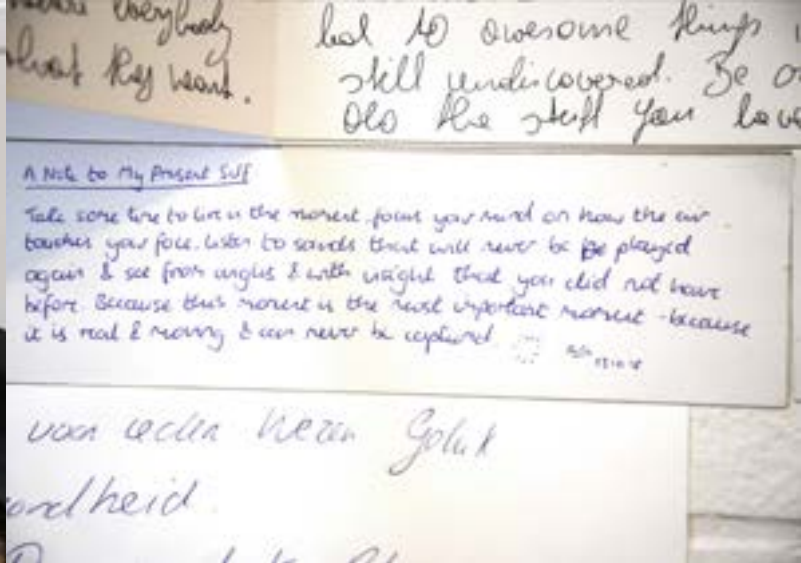 everybody
what they want.
but to awesome things
still undiscovered. Be
the stuff you love
A Note to My Present Self
Take some time to live in the moment. focus your mind on how the air
touches your face. Listen to sounds that will never be played
again & see from angles & with insight that you did not have
before. Because this moment is the most important moment - because
it is real & moving & can never be captured
voor ieder mens Geluk
ondheid